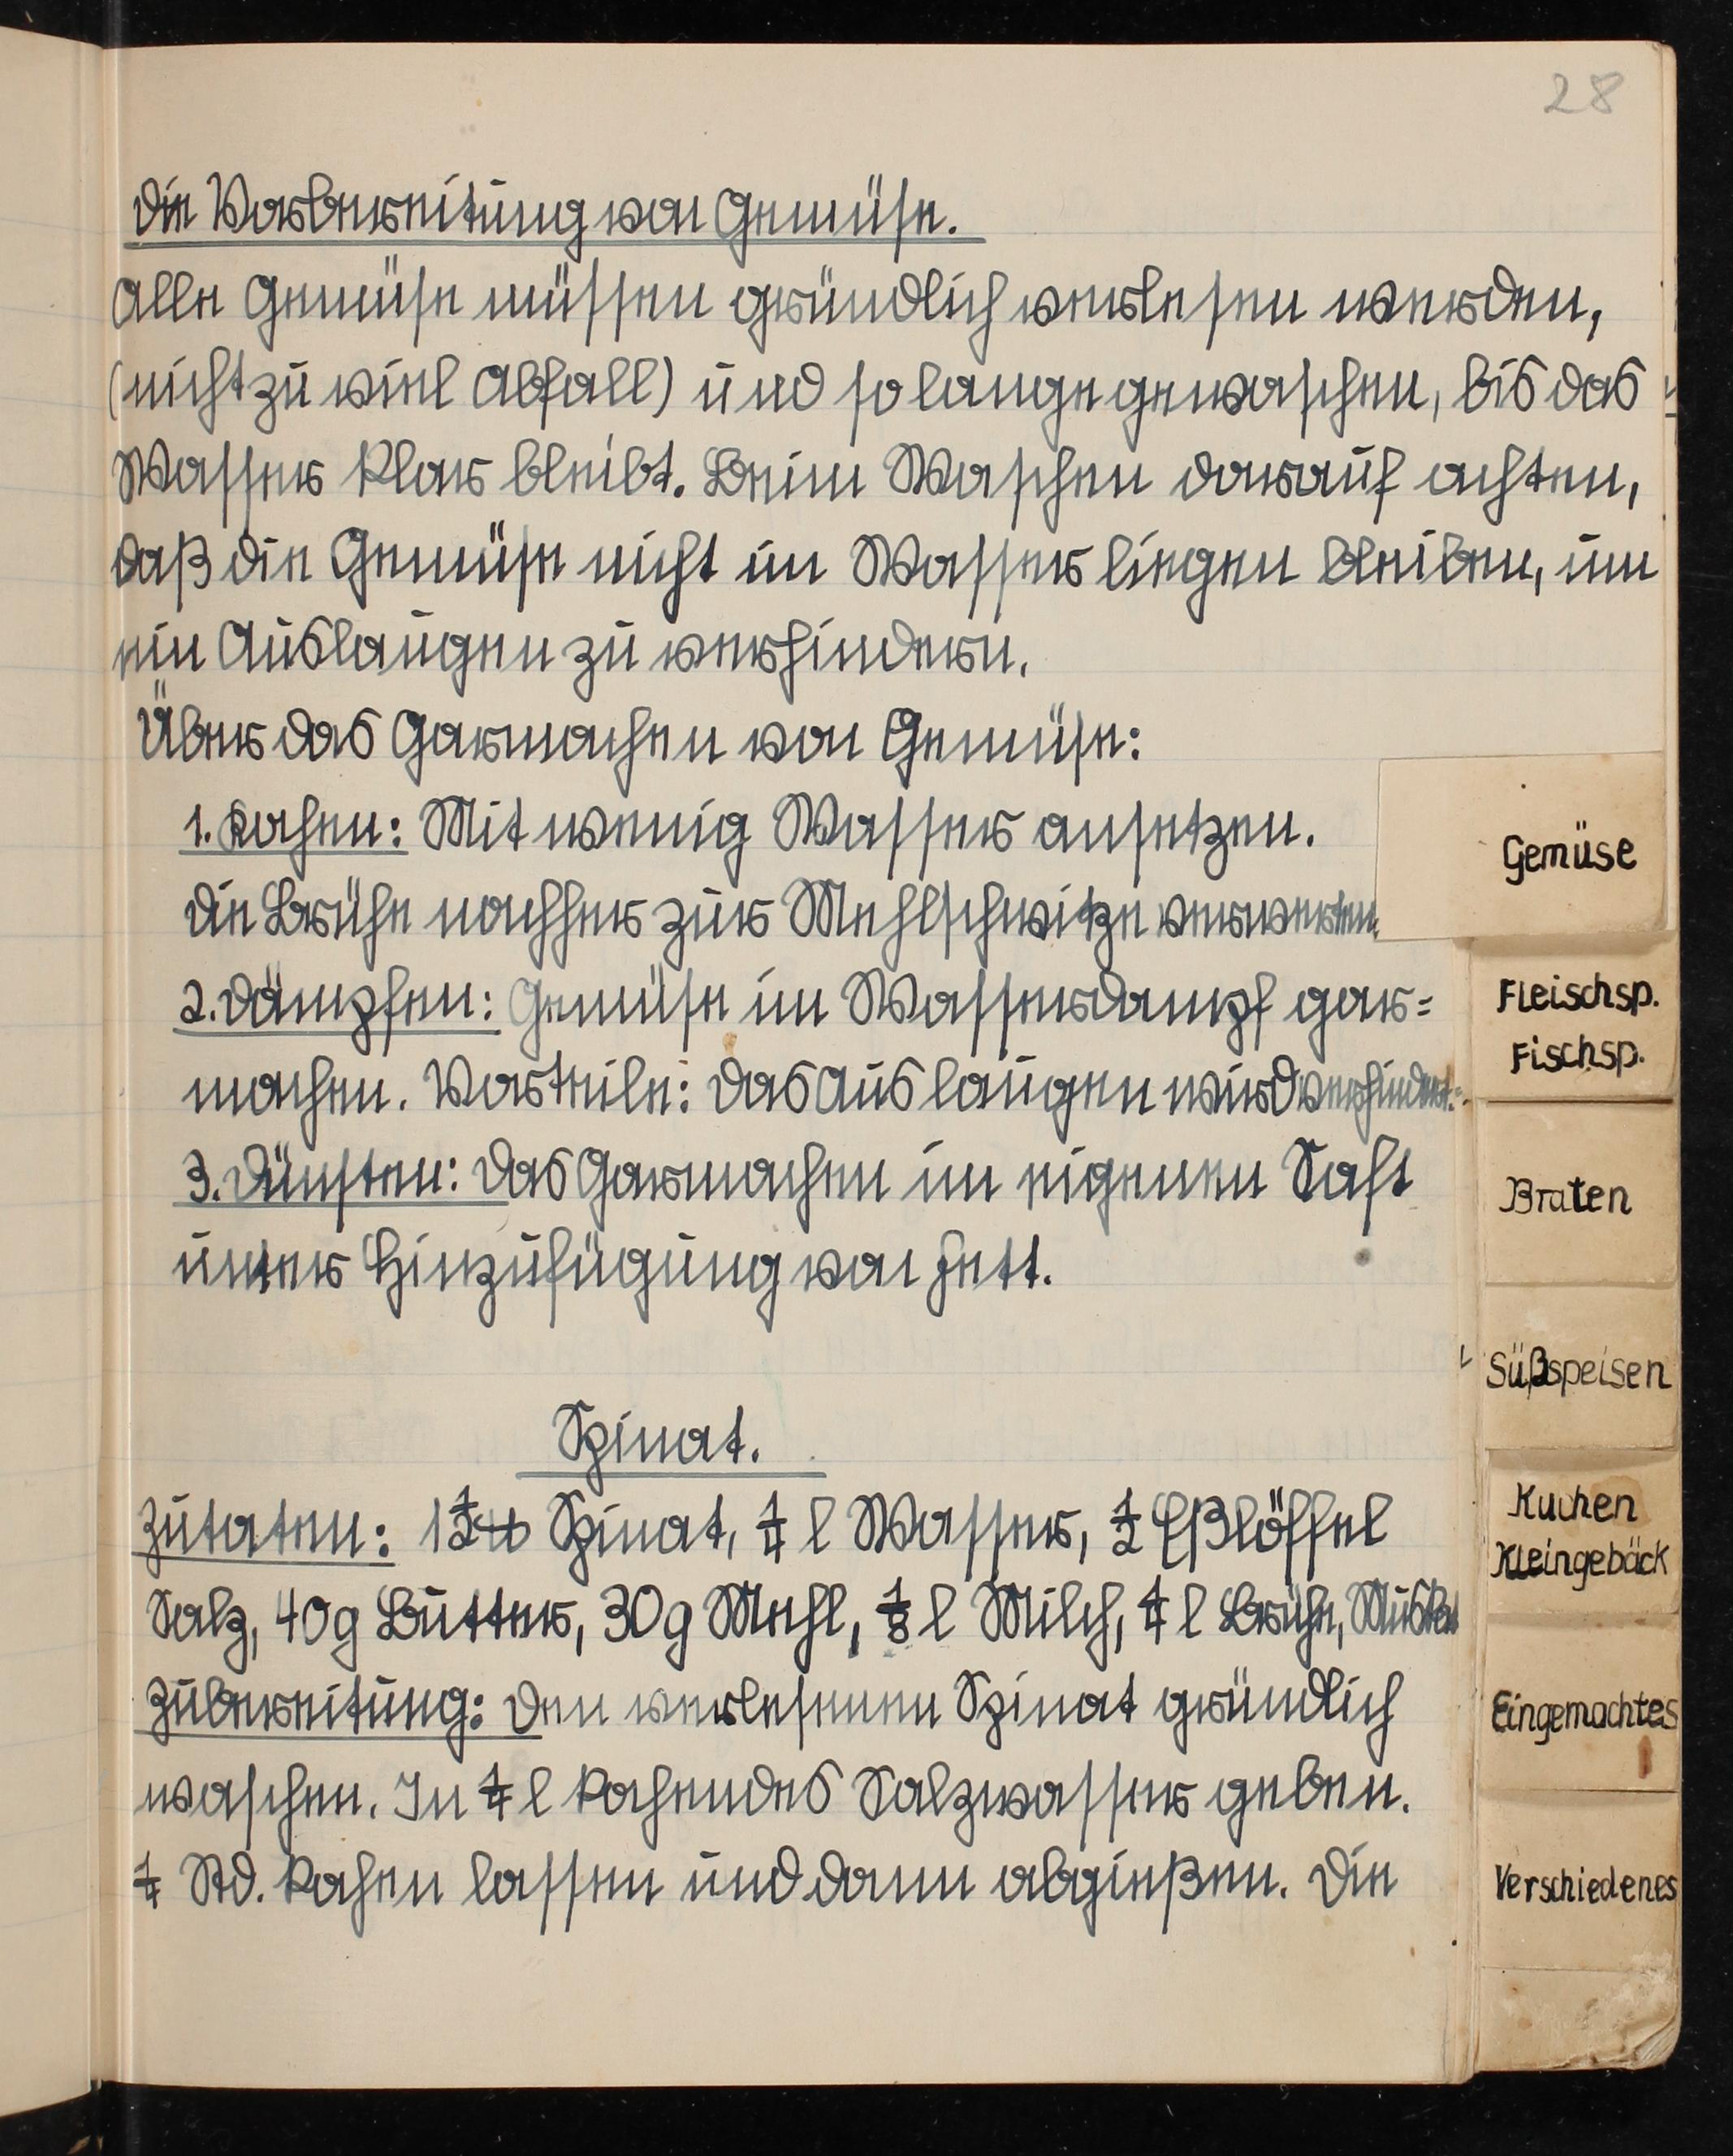 28
Die Vorbereitung von Gemüse.
Alle Gemüse müssen gründlich verlesen werden,
(nicht zu viel Abfall) und solange gewaschen, bis das
Wasser klar bleibt. Beim Waschen darauf achten,
daß die Gemüse nicht im Wasser liegen bleiben, um
ein Auslaugen zu verhindern.
Über das Garmachen von Gemüse:
1. Kochen: Mit wenig Wasser ansetzen.
Die Brühe nachher zur Mehlschwitze verwerten.
2. Dämpfen: Gemüse im Wasserdampf gar=
machen. Vorteile: Das Auslaugen wird verhindert.
3. Dünsten: Das Garmachen im eigenen Saft
unter Hinzufügung von Fett.
Spinat.
Zutaten: 1 1/2 ℔ Spinat, 1/4 l Wasser, 1/2 Eßlöffel
Salz, 40g Butter, 30g Mehl, 1/8 l Milch, 1/4 l Brühe, Muskat
Zubereitung: Den verlesenen Spinat gründlich
waschen. In 1/4 l kochendes Salzwasser geben.
1/4 Std. kochen lassen und dann abgießen. Die
Gemüse
Fleischsp.
Fischsp.
Braten
Süßspeisen
Kuchen
Kleingebäck
Eingemachtes
Verschiedenes